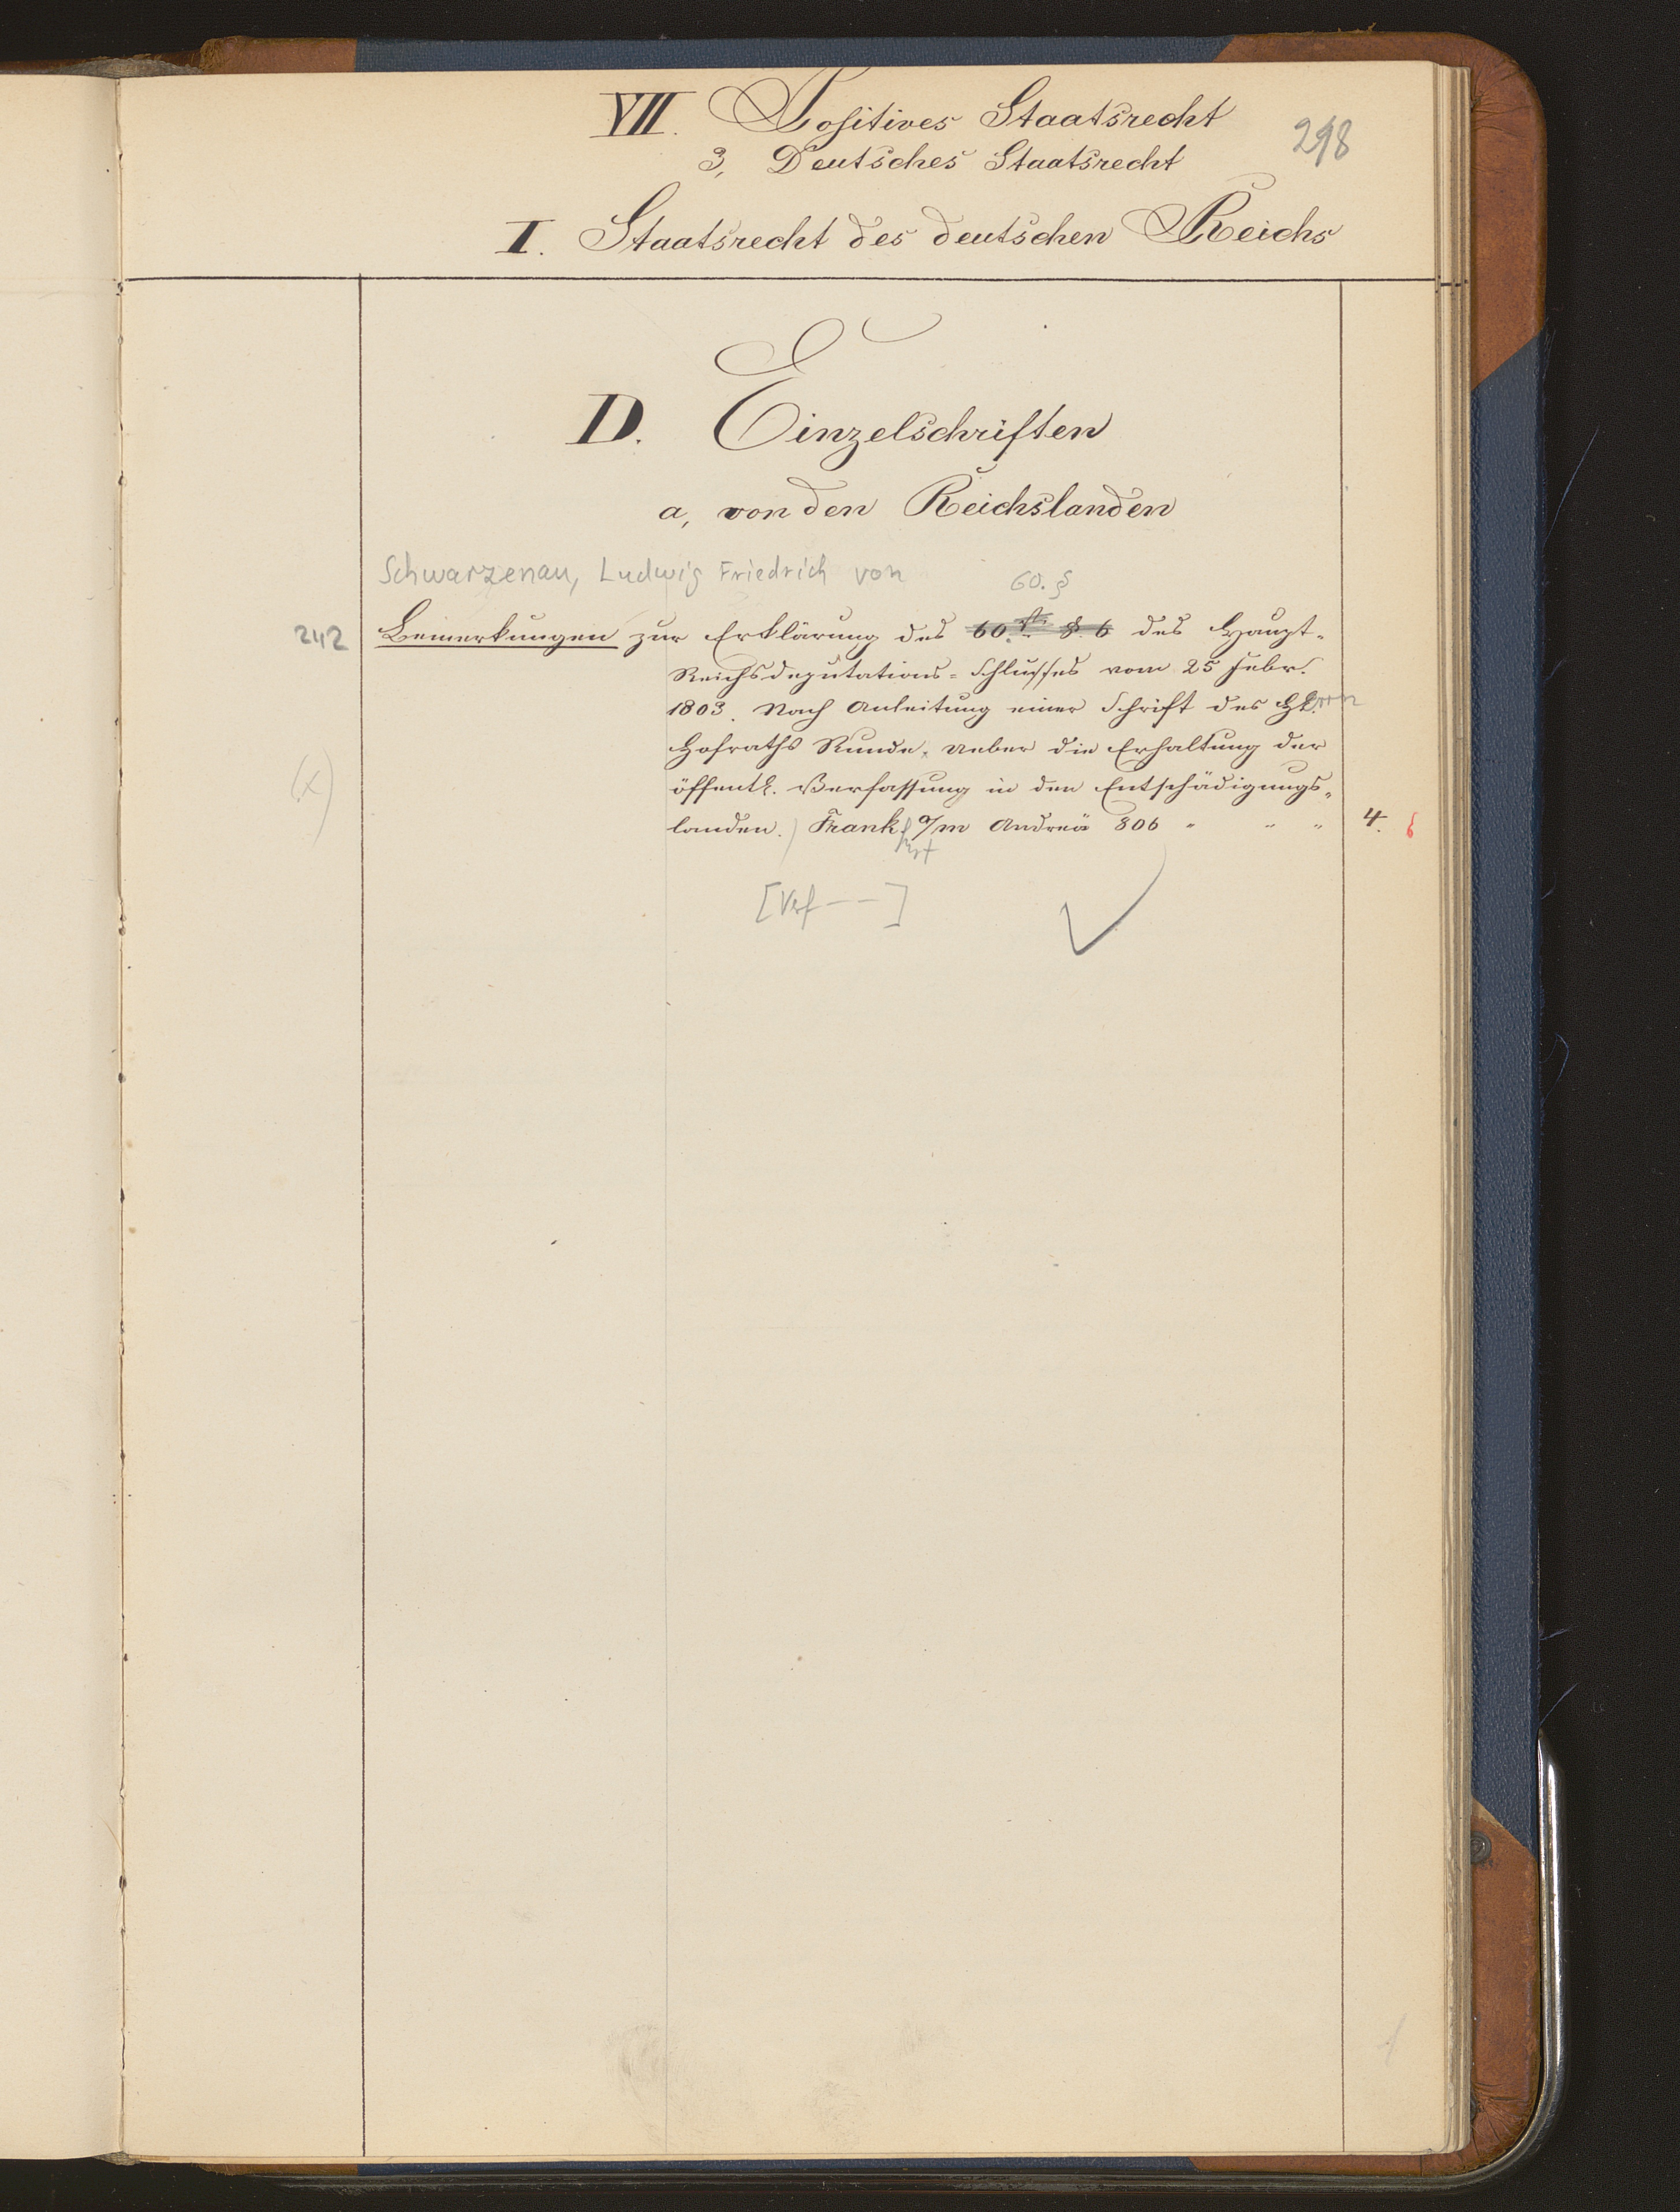 VII. Positives Staatsrecht
298
3, Deutsches Staatsrecht
I. Staatsrecht des deutschen Reichs
D. Einzelschriften
a, von den Reichslanden
Schwarzenau, Ludwig Friedrich von
60. §
242 Bemerkungen zur Erklärung des 60.st. §. 6 des Haupt-
Reichsdeputations-Schlusses vom 25 Febr.
1803. Nach Anleitung einer Schrift des H.
Hofraths Runde, Ueber die Erhaltung der
(x) öffentl. Verfassung in den Entschädigungs-
landen.) Frankf a/m Andreä 806 " " " 4. 6
furt
[Verf - - ]